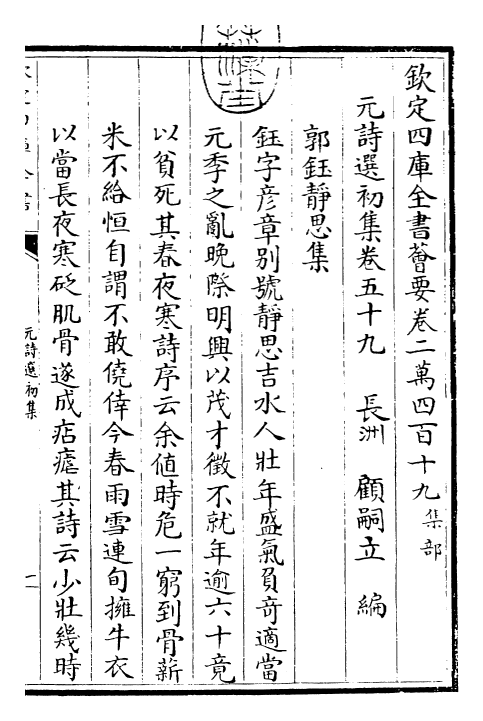 欽定四庫全書薈要卷二萬四百十九集部
元詩選初集卷五十九 長洲 顧嗣立 編
郭鈺靜思集
鈺字彦章别號靜思吉水人壯年盛氣負奇適當
元季之亂晚際明興以茂才徵不就年逾六十竟
以貧死其春夜寒詩序云余値時危一窮到骨薪
米不給恒自謂不敢僥倖今春雨雪連旬擁牛衣
以當長夜寒砭肌骨遂成痁瘧其詩云少壯幾時
元詩選初集